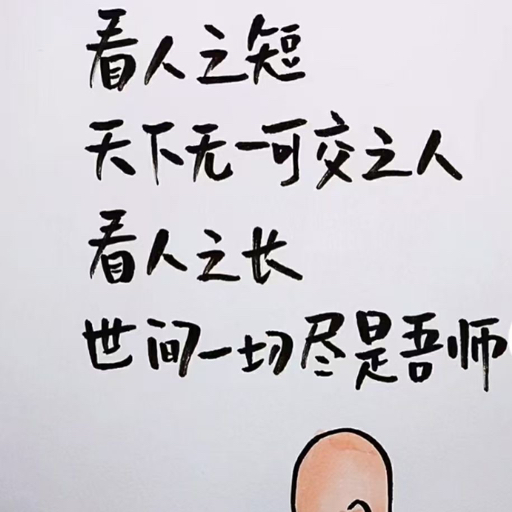 看人之短
天下无一可交之人
看人之长
世间一切尽是吾师